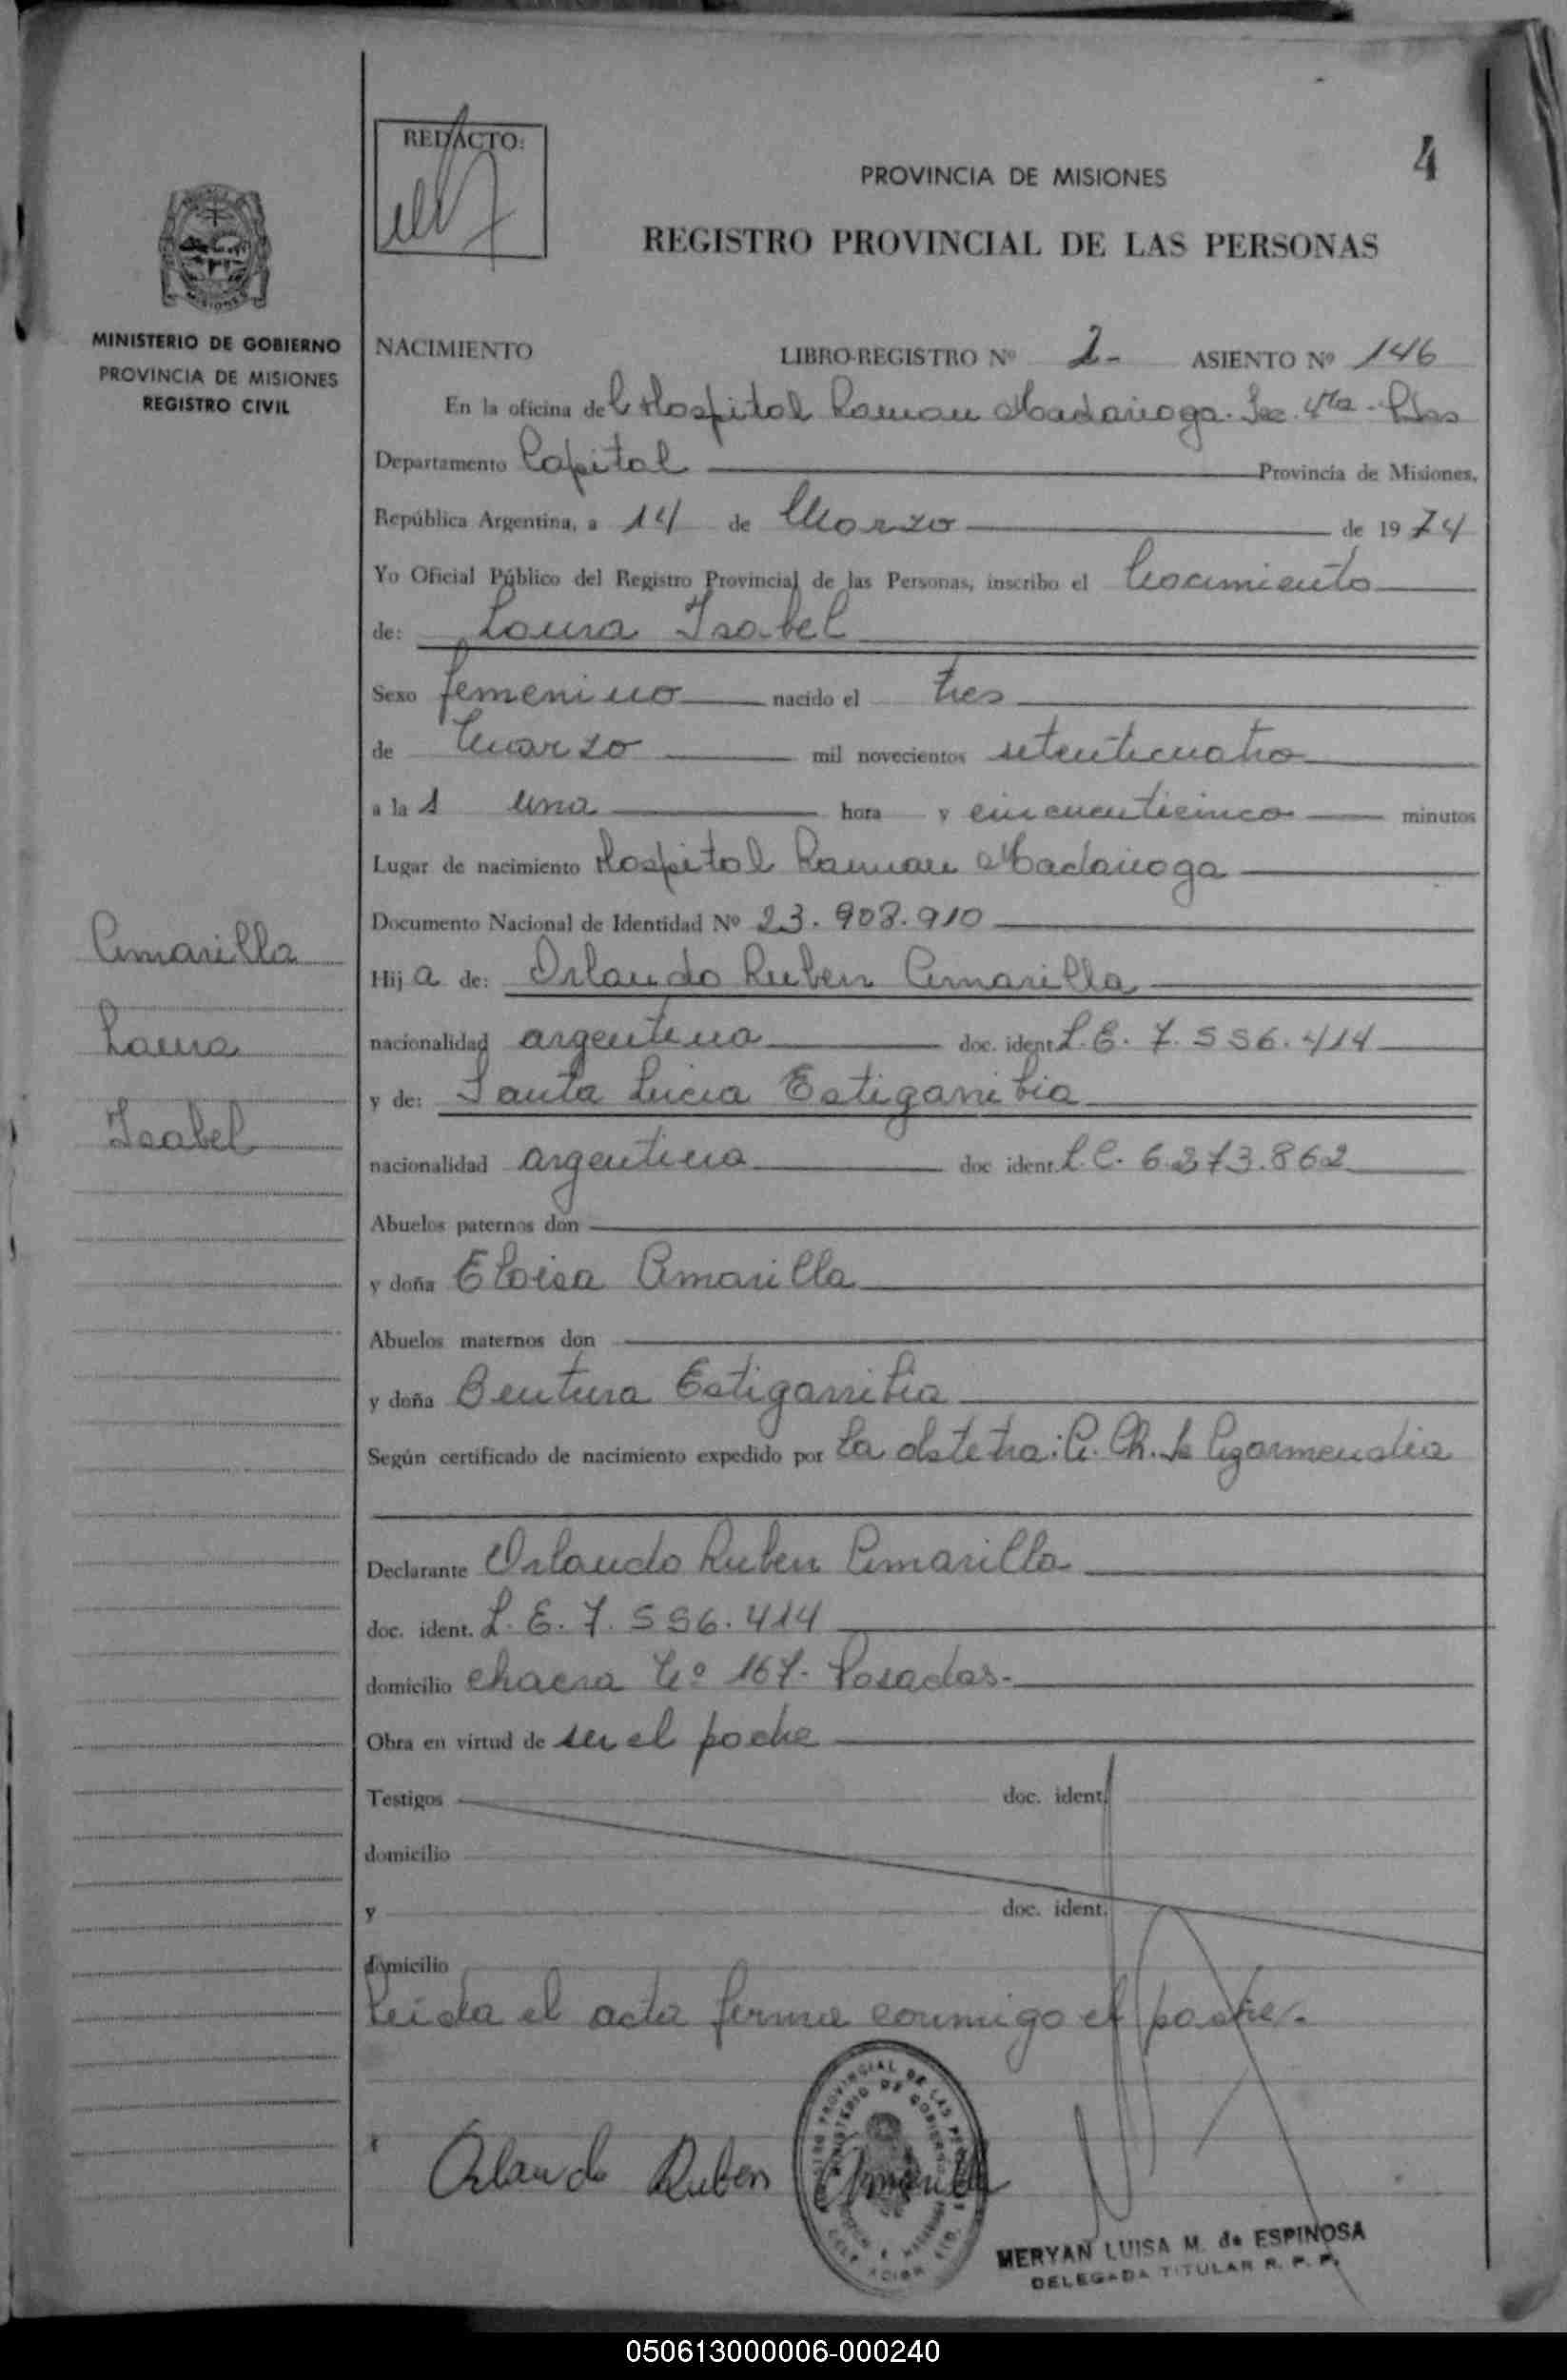 REDACTO:
4
PROVINCIA DE MISIONES
REGISTRO PROVINCIAL DE LAS PERSONAS
MISIONES
MINISTERIO DE GOBIERNO
PROVINCIA DE MISIONES
REGISTRO CIVIL
NACIMIENTO LIBRO-REGISTRO Nº 2- ASIENTO Nº 146
En la oficina del Hospital Ramon Madariaga. Sec. 4ta - Pdas
Departamento Capital Provincia de Misiones,
República Argentina, a 14 de Marzo de 1974
Yo Oficial Público del Registro Provincial de las Personas, inscribo el Nacimiento
de: Laura Isabel
Sexo femenino nacido el tres
de Marzo mil novecientos setenticuatro
a la 1 una hora y cincuenticinco minutos
Lugar de nacimiento Hospital Ramon Madariaga
Documento Nacional de Identidad Nº 23.908.910
Amarilla
Laura
Isabel
Hija de: Orlando Ruben Amarilla
nacionalidad argentina doc. ident. L.E. 7.556.414
y de: Santa Lucia Estigarribia
nacionalidad argentina doc ident. L.C. 6.373.862
Abuelos paternos don
y doña Eloisa Amarilla
Abuelos maternos don
y doña Bentura Estigarribia
Según certificado de nacimiento expedido por la obstetra: A. Ch. de Agarmendia
Declarante Orlando Ruben Amarilla
doc. ident. L.E. 7.556.414
domicilio chacra Nº 167- Posadas-
Obra en virtud de ser el padre
Testigos doc. ident.
domicilio
y doc. ident.
domicilio
Leida el acta firma conmigo el padre.-
Orlando Ruben Amarilla
MERYAN LUISA M. de ESPINOSA
DELEGADA TITULAR R. P. P.
050613000006-000240